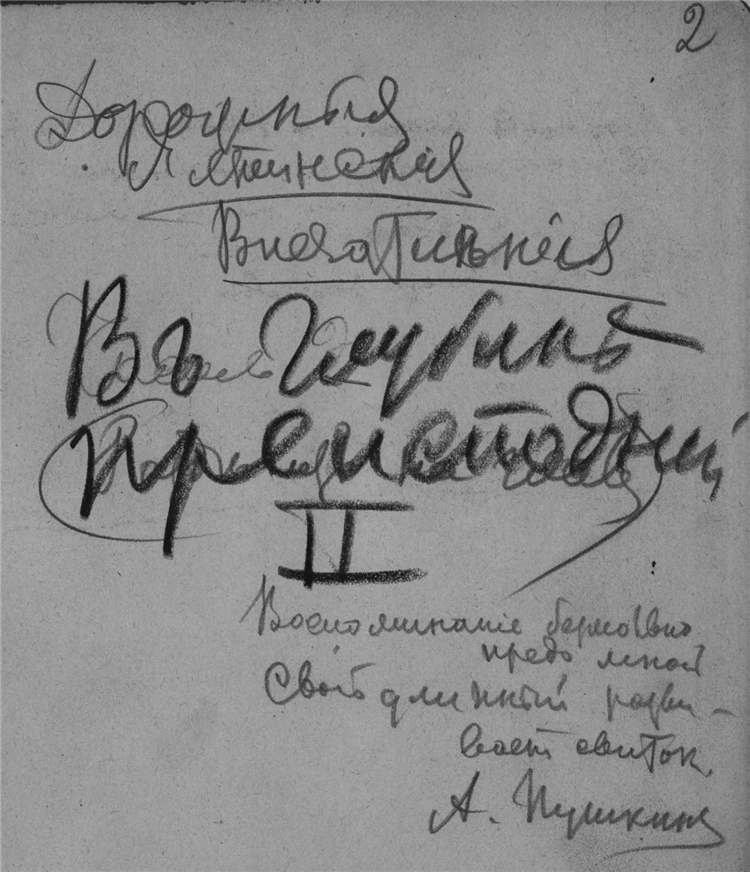 2
Дорожныя
Ялтинскія
Впечатлѣнія
Въ глубинѣ
преисподней
II
Воспоминаніе безмолвно
предо мной
Свой длинный разви-
ваетъ свитокъ.
А. Пушкинъ